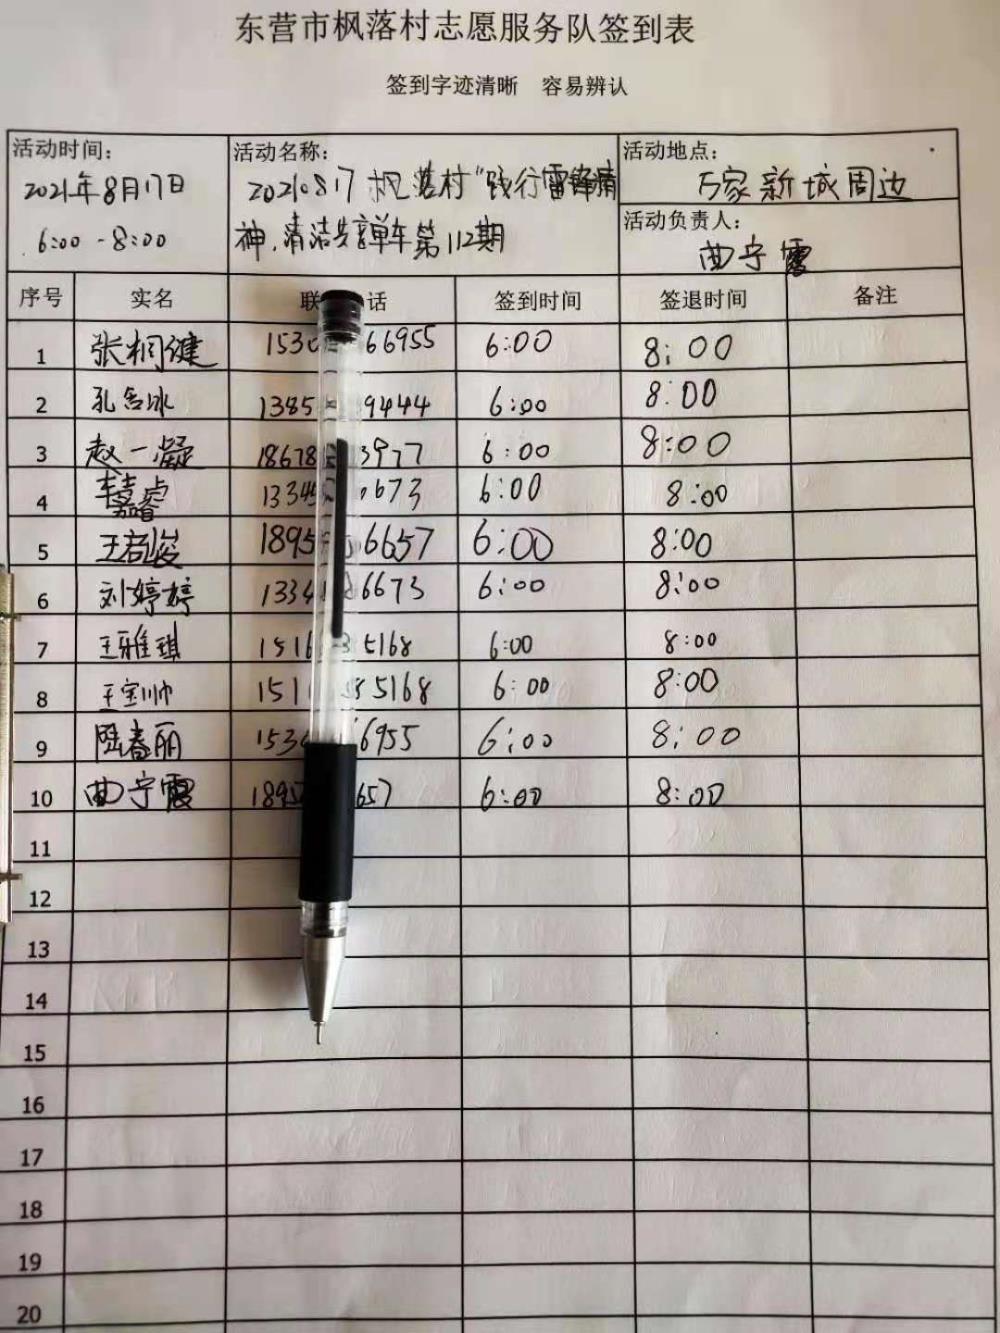 东营市枫落村志愿服务队签到表
签到字迹清晰 容易辨认
活动时间： 活动名称： 活动地点：
2021年8月17日 20210817枫落村“践行雷锋精 万家新城周边
6:00-8:00 神，清洁共享单车第112期 活动负责人：
曲宁霞
序号 实名 联 话 签到时间 签退时间 备注
1 张桐健 1530 66955 6:00 8:00
2 孔令冰 1385 9444 6:00 8:00
3 赵一凝 18678 3977 6:00 8:00
4 1334 6673 6:00 8:00
5 1895 6657 6:00 8:00
6 刘婷婷 1334 6673 6:00 8:00
7 王雅琪 1516 5168 6:00 8:00
8 王宝帅 151 85168 6:00 8:00
9 陆春丽 1530 6955 6:00 8:00
10 曲宁霞 1895 657 6:00 8:00
11
12
13
14
15
16
17
18
19
20